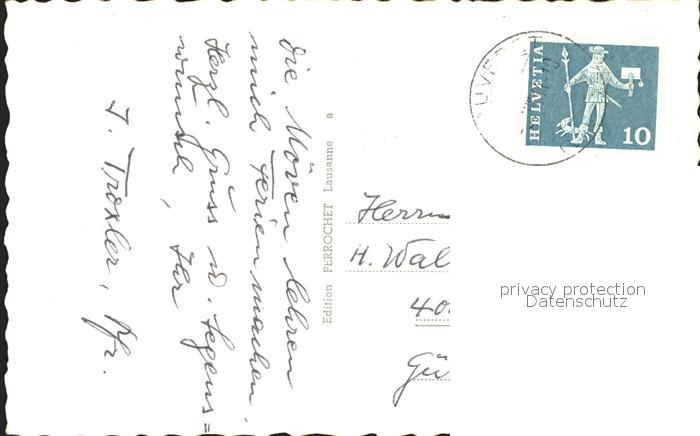 die Möven lehren
mich Ferien machen.
Herzl. Gruss u. Segens=
wünsche, Ihr
J. Troxler, Pfr.
Edition PERROCHET Lausanne a
HELVETIA
10
Herrn
H. Wal
40
Gü
privacy protection
Datenschutz